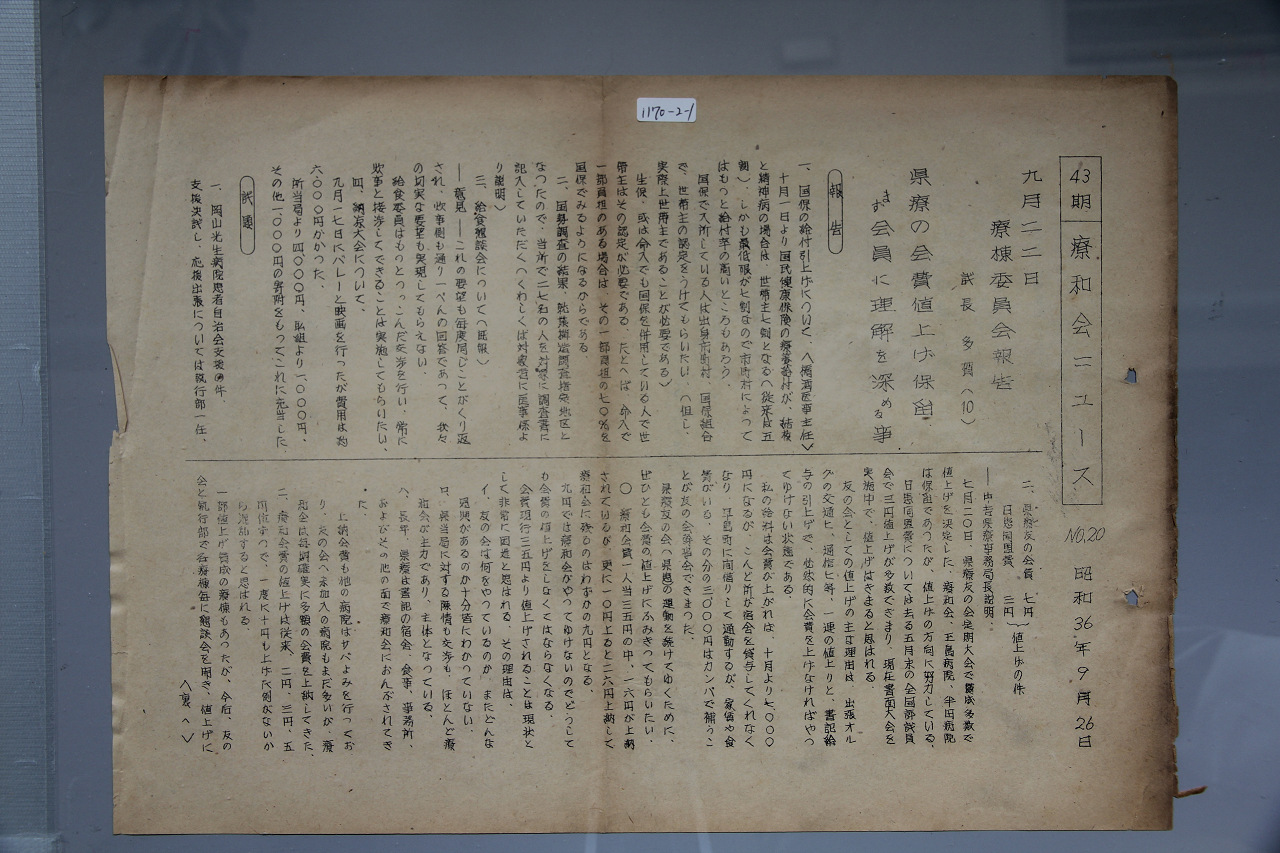 1170-2-1
43期 療和会ニュース
NO.20 昭和36年9月26日
九月二二日
療棟委員会報告
議長 多賀(10)
県療の会費値上げ保留
まず会員に理解を深める事
報告
一、国保の給付引上げについて、
十月一日より国民健康保険の療養給付が、結核
と精神病の場合は、世帯主七割となる(従来は五
割)しかも最低限が七割なので市町村によって
はもっと給付率の高いところもあろう。
国保で入所している人は出身市町村、国保組合
で、世帯主の認定をうけてもらいたい、(但し、
実際上世帯主であることが必要である)
生保、或は命入でも国保を併用している人で世
帯主はその認定が必要である、たとへば、命入で
一部負担のある場合は、その一部負担の七〇%を
国保でみるようになるからである
二、国勢調査の結果、
なつたので、当所で二七名の人を対象に調査書に
記入していただく(くわしくは対象者に医事係よ
り説明)
三、給食懇談会について(既報)
――意見――これの要望も毎度同じことがくり返
され、炊事側も通り一ぺんの回答であって、我々
の切実な要望も実現してもらえない。
給食委員はもっとつっこんだ交渉を行い、常に
炊事と接渉してできることは実施してもらいたい、
四、納涼大会について、
九月一七日にバレーと映画を行ったが費用は約
六〇〇〇円かかった、
所当局より四〇〇〇円、私組より一〇〇〇円、
その他一〇〇〇円の寄附をもってこれに充当した
議題
一、岡山光生病院患者自治会支援の件
支援決議し、応援出張については執行部一任、
二、県療友の会費 七円
日患同盟費 三円
値上げの件
――中若県療事務局長説明、
七月二〇日、県療友の会定期大会で賛成多数で
値上げを決定した、療和会、玉島病院、半田病院
は保留であつたが、値上げの方向に努力している、
日患同盟費については去る五月末の全国評議員
会で三円値上げが多数できまり、現在書面大会を
実施中で、値上げはきまると思はれる
友の会としての値上げの主な理由は、出張オル
グの交通ヒ、通信ヒ等、一連の値上りと、書記給
与の引上げで、必然的に会費を上げなければやっ
てゆけない状態である、
私の給料は会費が上がれば、十月より七〇〇〇
円になるが、こんど所が宿舎を貸与してくれなく
なり、早島町に間借りして通勤するが、家賃や食
費がいる、その分の三〇〇〇円はカンパで補うこ
とが友の会幹事会できまつた、
県療友の会へ県患の運動を続けてゆくために、
ぜひとも会費の値上げにふみきってもらいたい、
〇 療和会費一人当三五円の中、一六円が上納
されているが、更に一〇円上ると二六円上納して
療和会に残るものはわずかの九円となる、
九円では療和会がやつてゆけないのでどうして
も会費の値上げをしなくてはならなくなる、
会費現行三五円より値上げされることは現状と
して非常に困難と思はれる、その理由は、
イ、友の会は何をやつているのか、またどんな
恩恵があるのか十分皆にわかつていない、
ロ、県当局に対する陳情も交渉も、ほとんど療
和会が主力であり、主体となっている、
ハ、長年、県療は書記の宿舎、食事、事務所、
およびその他の面で療和会におんぶされてき
た、
上納会費も他の病院はサバよみを行ってお
り、友の会へ未加入の病院もまだ多いが、療
和会は毎期確実に多額の会費を上納してきた、
ニ、療和会費の値上げは従来、二円、三円、五
円位ずつで、一度に十円も上げた例がないか
ら混乱すると思はれる、
一部値上げ賛成の療棟もあったが、今后、友の
会と執行部で各療棟毎に懇談会を開き、値上げに
(裏へ)